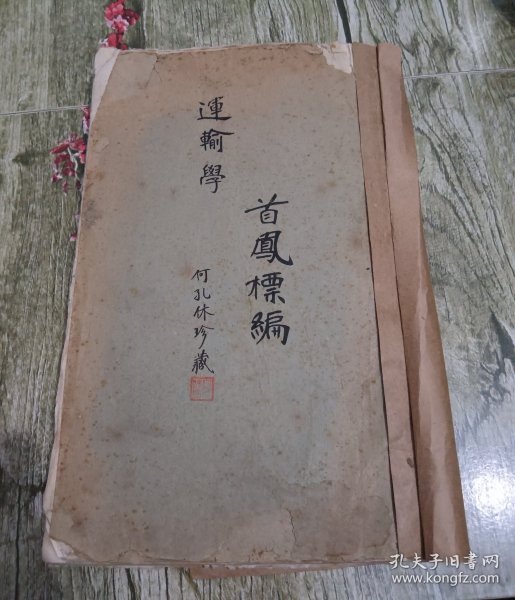 首鳳標編
運輸學
何孔休珍藏
孔夫子旧书网
www.kongfz.com